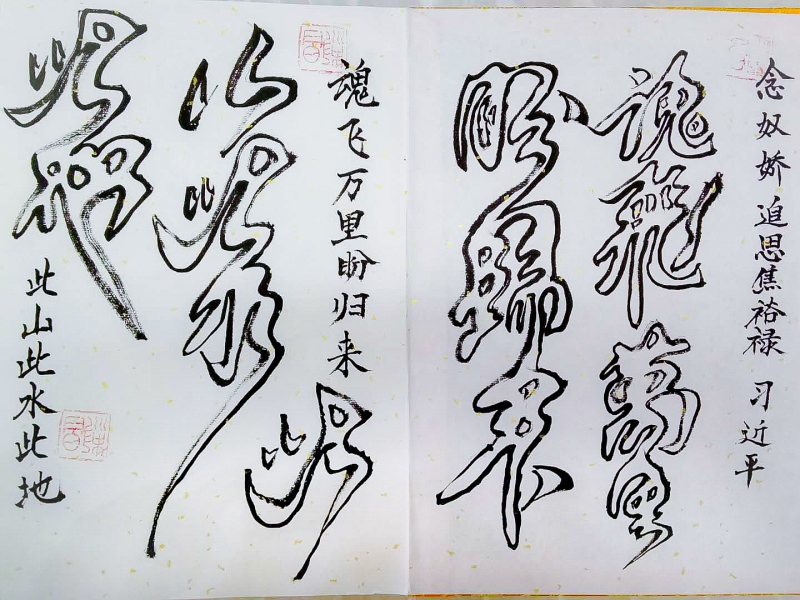 念奴娇 追思焦裕禄 习近平
魂飛萬里
盼歸来
魂飞万里盼归来
此
山此水
此地
此山此水此地